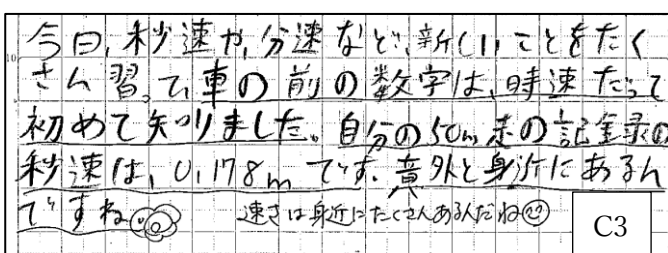 今日、秒速や、分速など、新しいことをたく
さん習って、車の前の数字は、時速だって
初めて知りました。自分の50m走の記録の
秒速は、0.178mです。意外と身近にあるん
ですね
速さは身近にたくさんあるんだね
C3